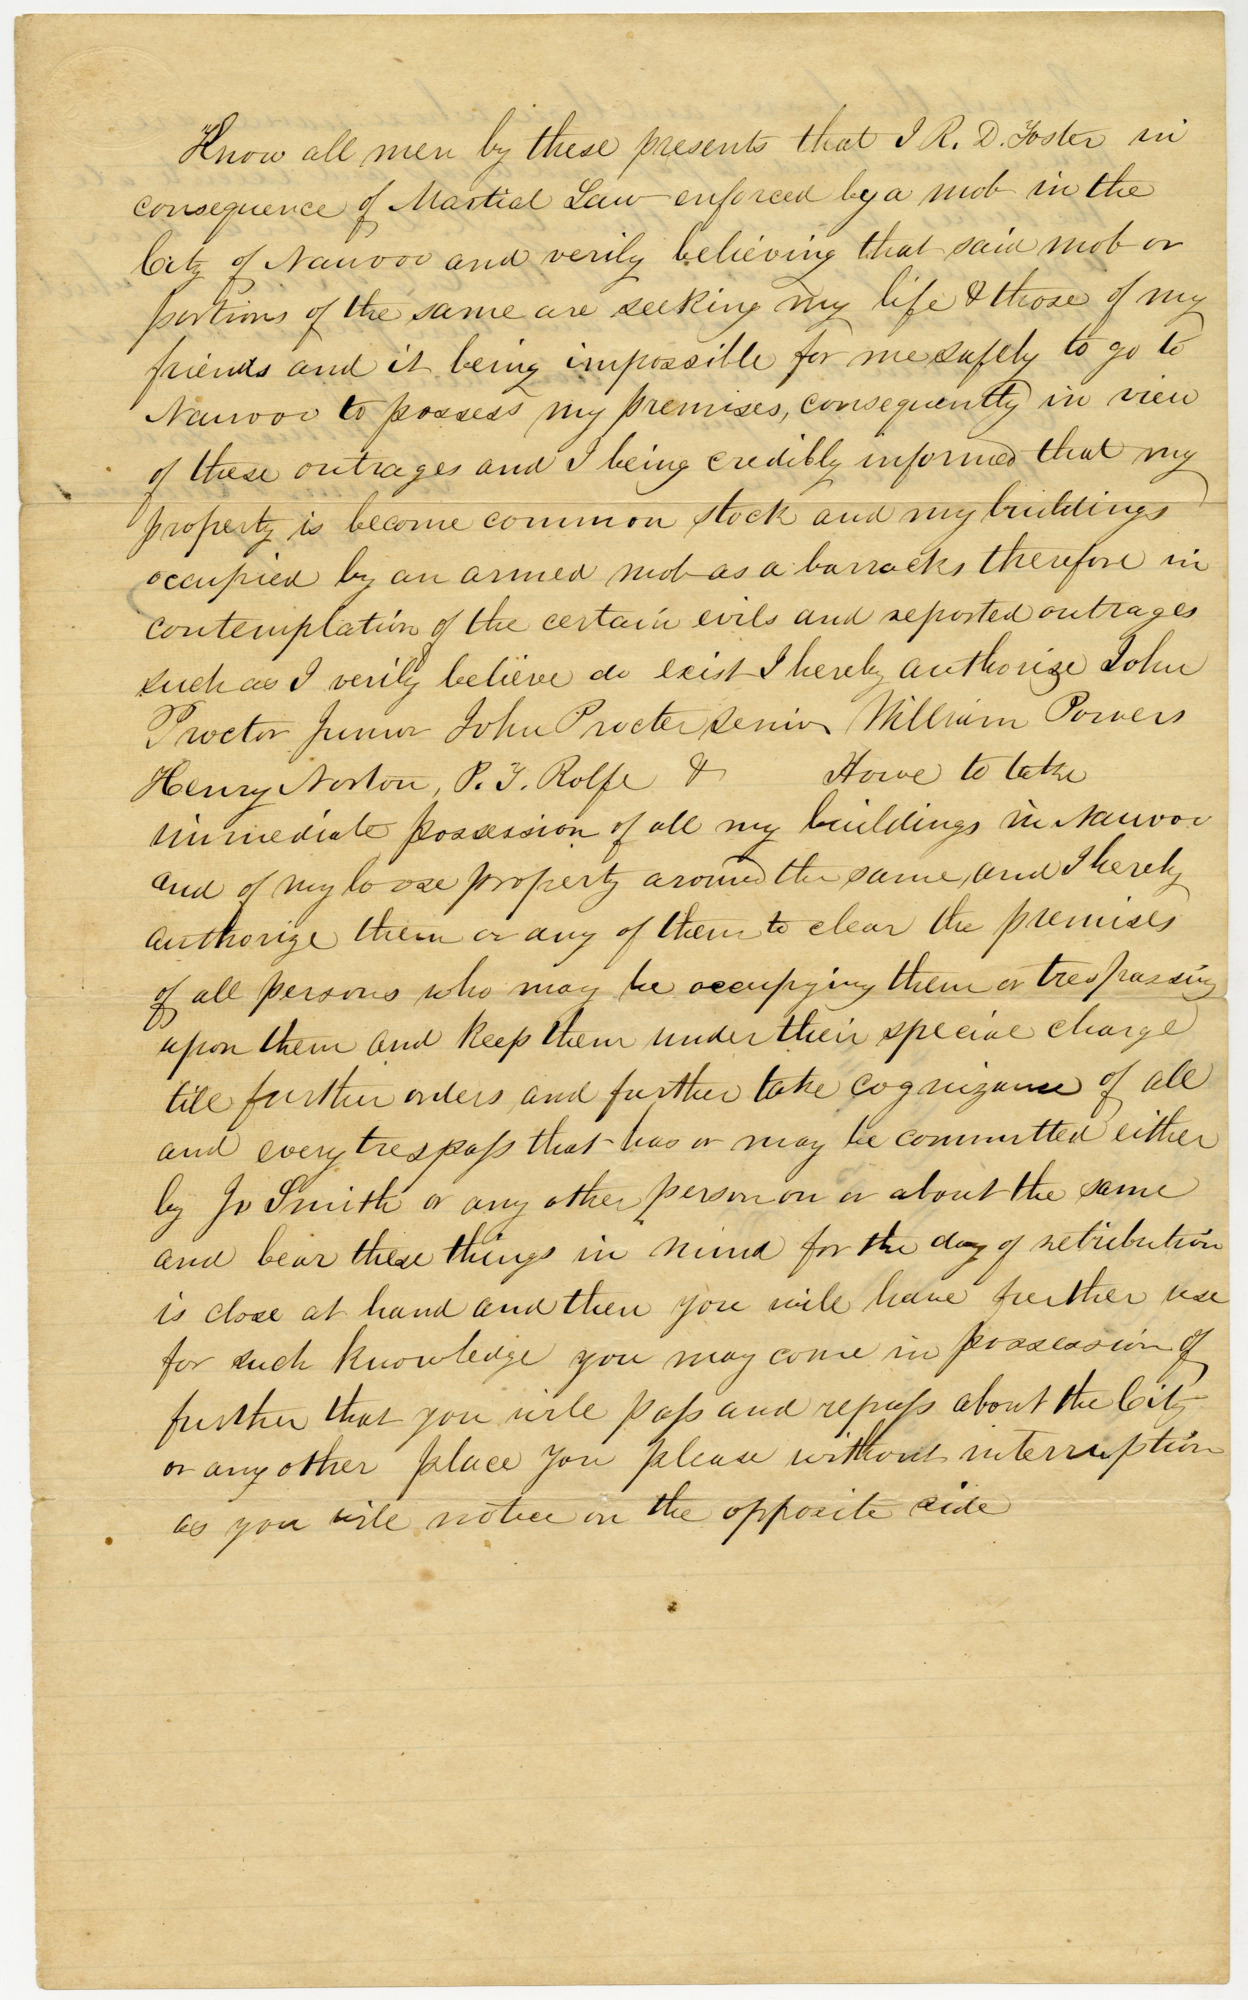 Know all men by these presents that I R. D. Foster in
consequence of Martial Law enforced by a mob in the
City of Nauvoo and verily believing that said mob or
portions of the same are seeking my life & those of my
friends and it being impossible for me safely to go to
Nauvoo to possess my premises, consequently in view
of these outrages and I being credibly informed that my
property is become common stock and my buildings
occupied by an armed mob as a barracks therefore in
contemplation of the certain evils and reported outrages
such as I verily believe do exist I hereby authorize John
Proctor Junior John Procter senior William Powers
Henry Norton, P. T. Rolfe & Howe to take
immediate possession of all my buildings in Nauvoo
and of my loose property around the same, and I hereby
authorize them or any of them to clear the premises
of all persons who may be occupying them or trespassing
upon them and keep them under their special charge
till further orders, and further take cognizance of all
and every trespass that has or may be committed either
by Jo Smith or any other person on or about the same
and bear these things in mind for the day of retribution
is close at hand and then you will have further use
for such knowledge you may come in possession of
further that you will pass and repass about the City
or any other place you please without interruption
as you will notice on the opposite side